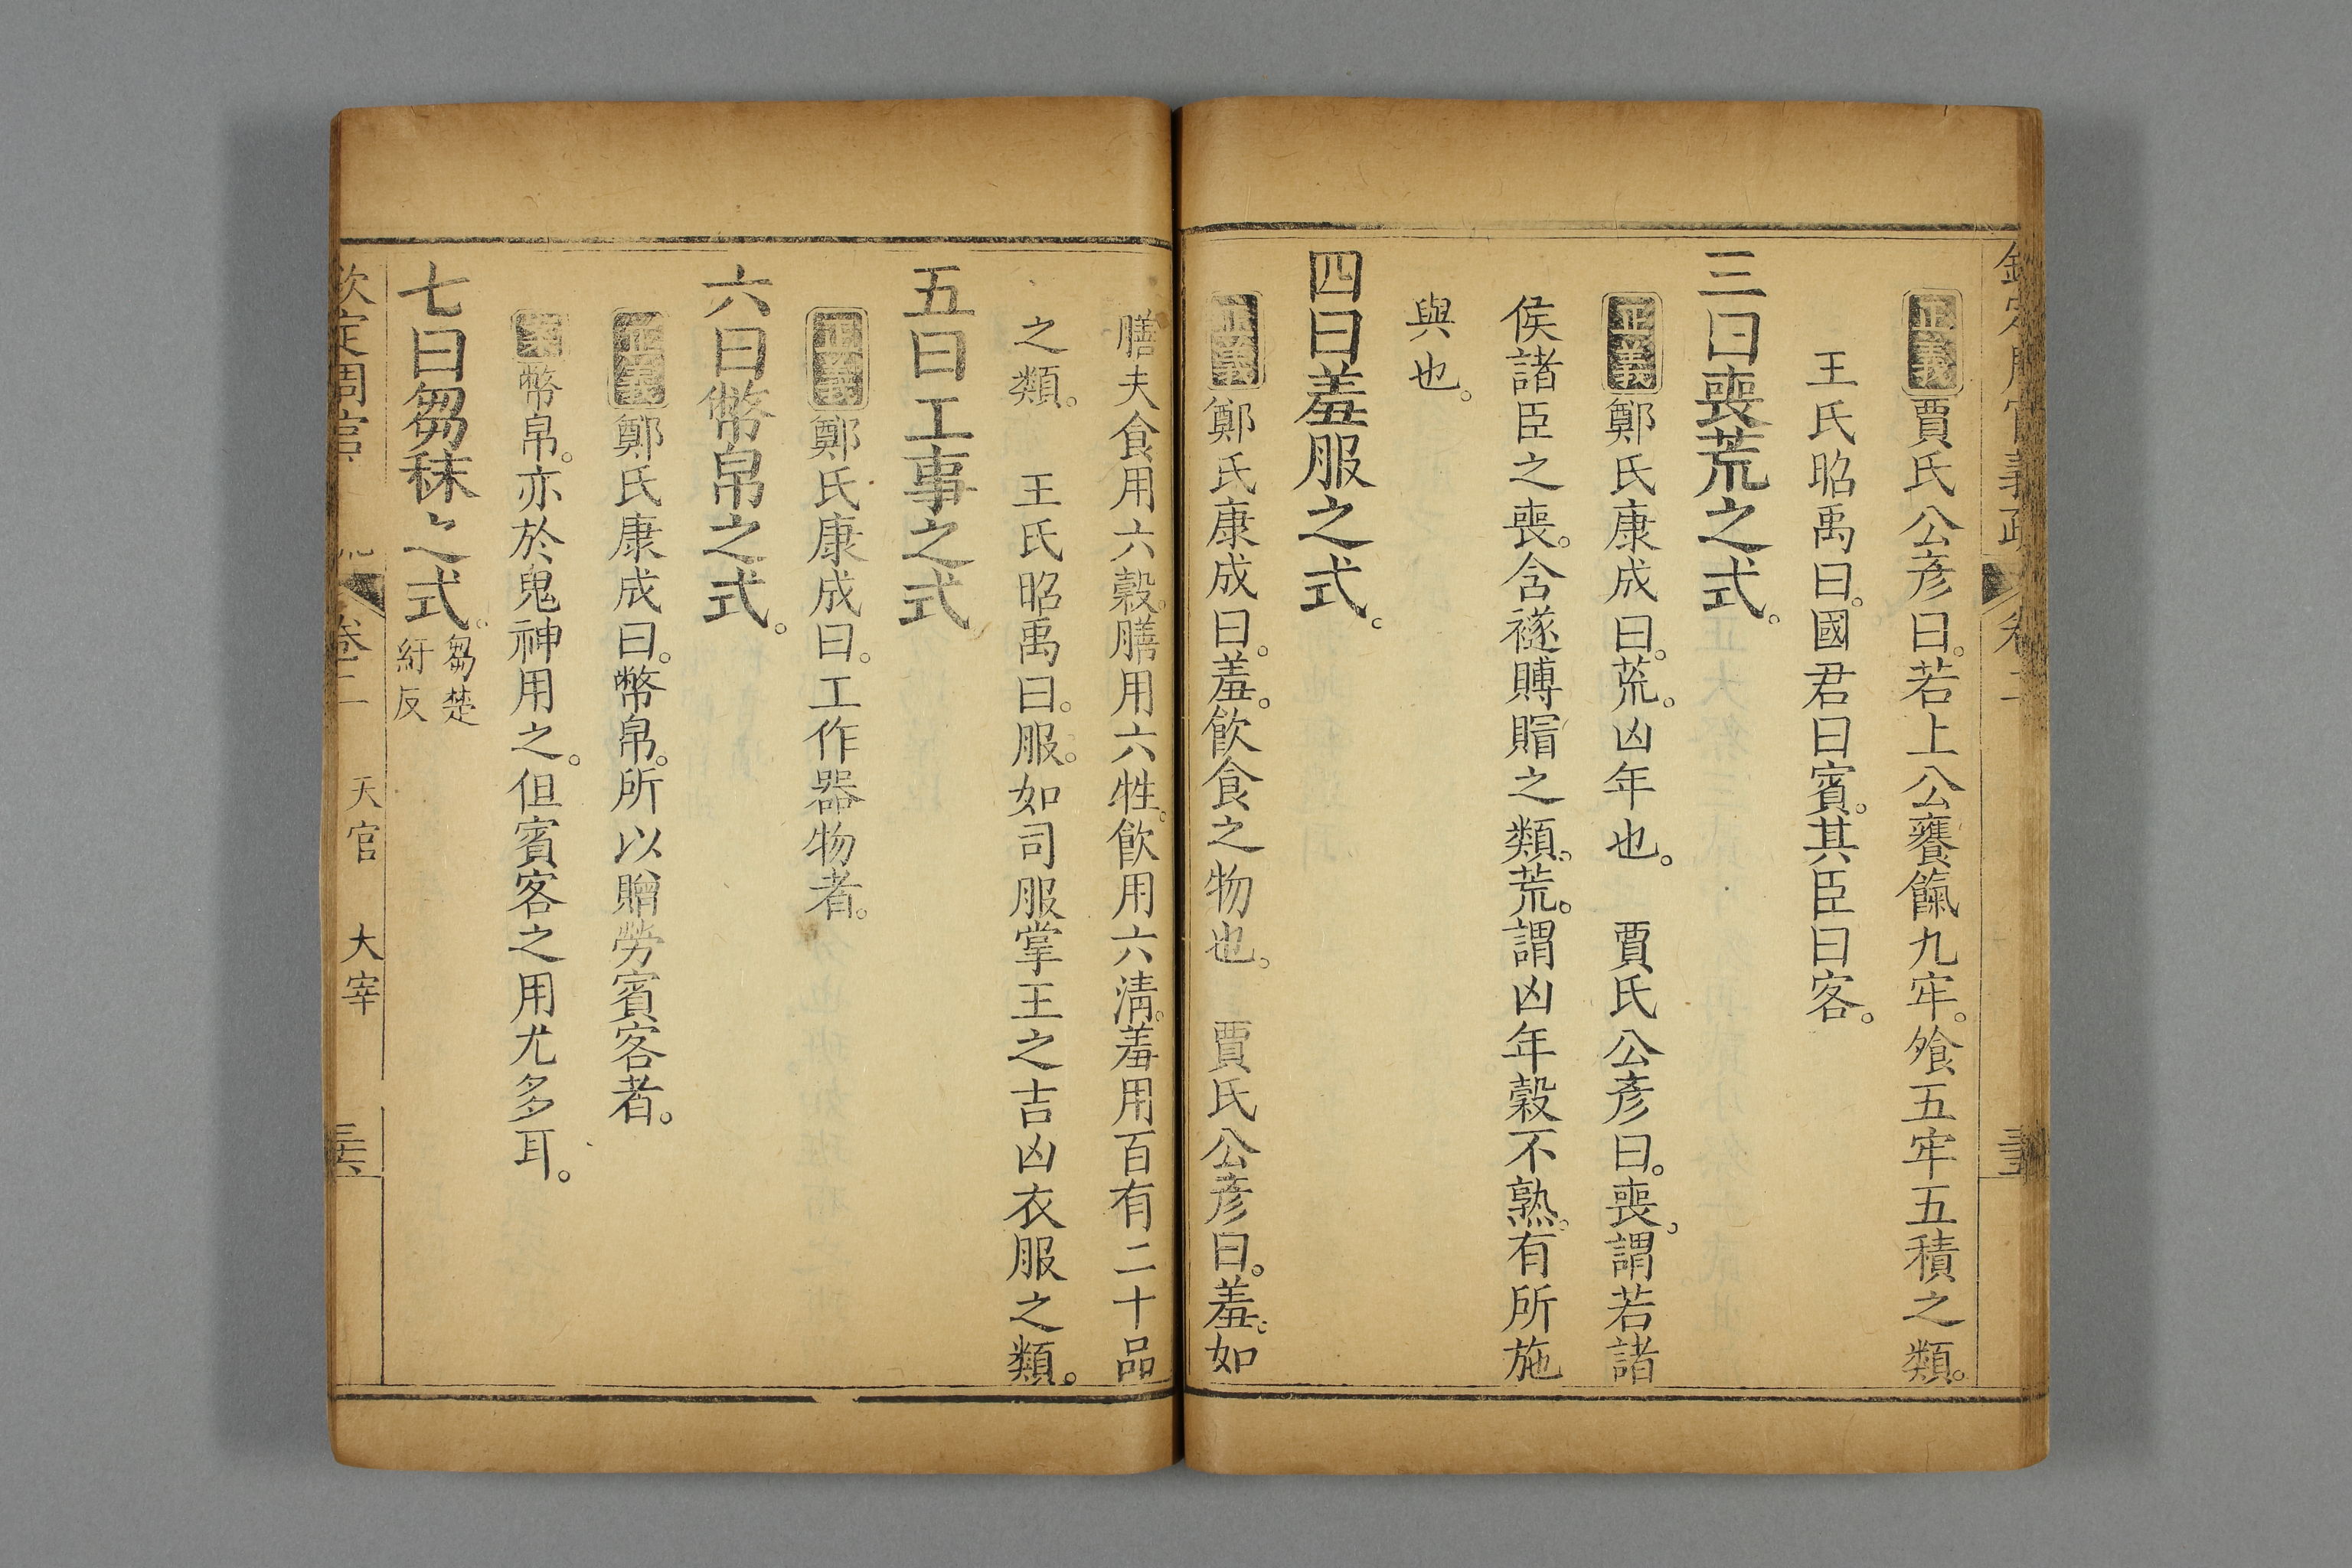 正義賈氏公彥曰。若上公饔餼九牢。飧五牢五積之類。
王氏昭禹曰。國君曰賓。其臣曰客。
三曰喪荒之式。
正義鄭氏康成曰。荒。凶年也。 賈氏公彥曰。喪。謂若諸
侯諸臣之喪。含襚賻賵之類。荒。謂凶年穀不熟。有所施
與也。
四曰羞服之式。
正義鄭氏康成曰。羞。飲食之物也。 賈氏公彥曰。羞。如
膳夫食用六穀。膳用六牲。飲用六清。羞用百有二十品
之類。 王氏昭禹曰。服。如司服掌王之吉凶衣服之類。
五曰工事之式
正義鄭氏康成曰。工作器物者。
六曰幣帛之式。
正義鄭氏康成曰。幣帛。所以贈勞賓客者。
幣帛。亦於鬼神用之。但賓客之用尤多耳。
七曰芻秣之式。芻楚
紆反
欽定周官 卷二 天官 大宰